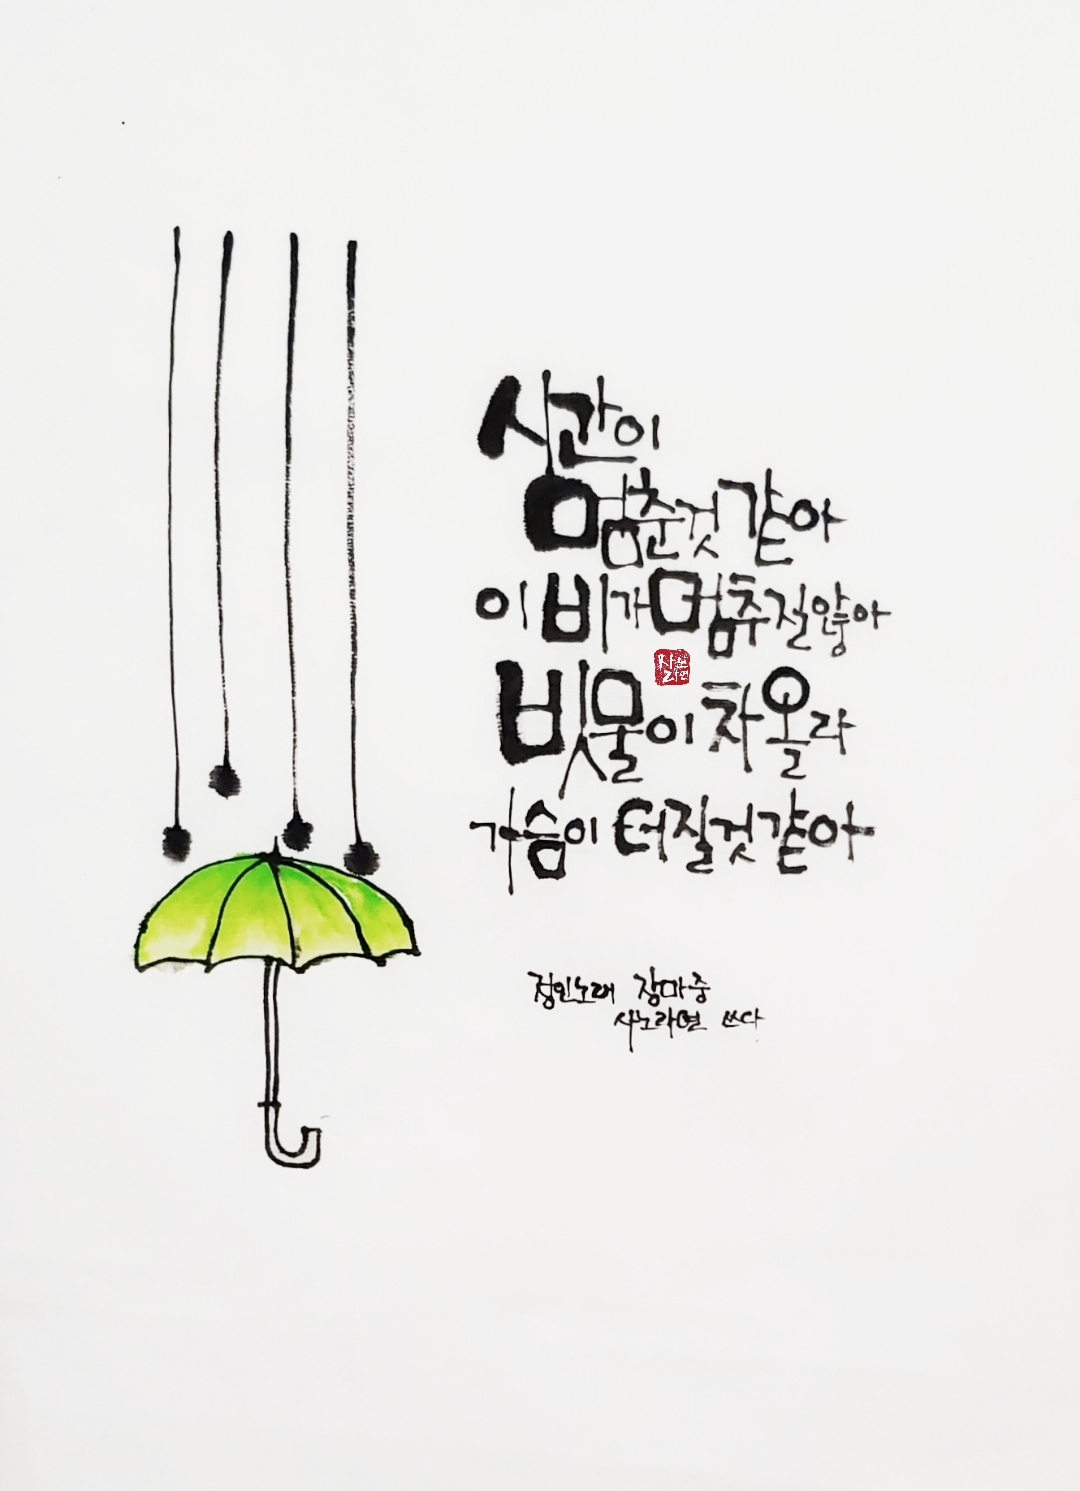 시간이
멈춘것 같아
이 비가 멈추질 않아
빗물이 차올라
가슴이 터질것 같아
사노라면
정인노래 장마중
사노라면 쓰다